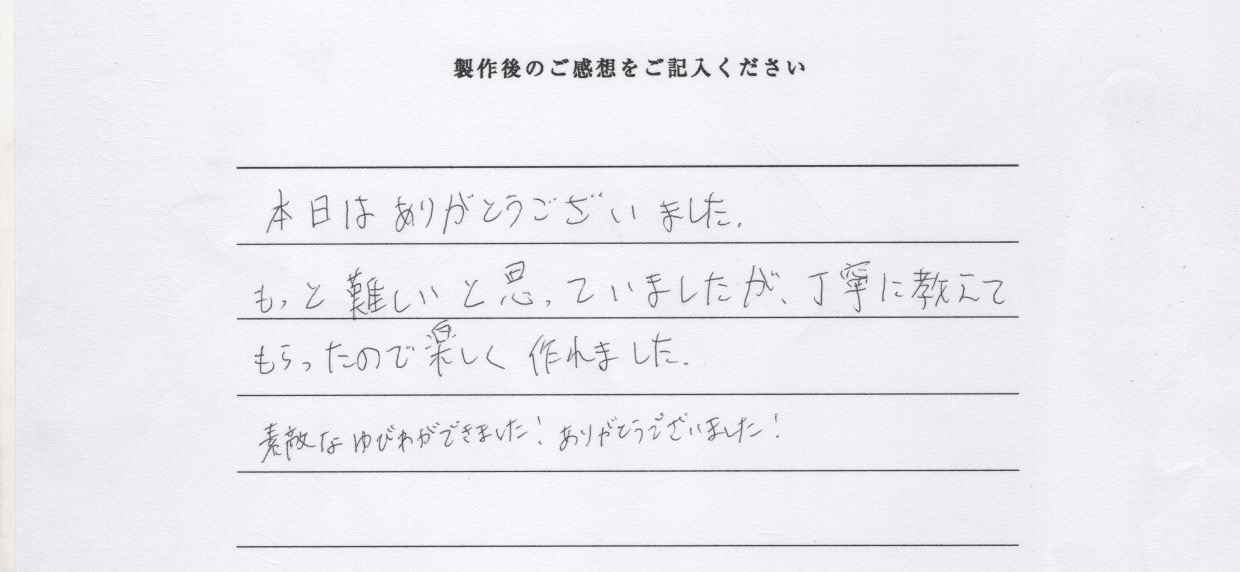 製作後のご感想をご記入ください
本日はありがとうございました.
もっと難しいと思っていましたが、丁寧に教えて
もらったので楽しく作れました.
素敵なゆびわができました! ありがとうございました!